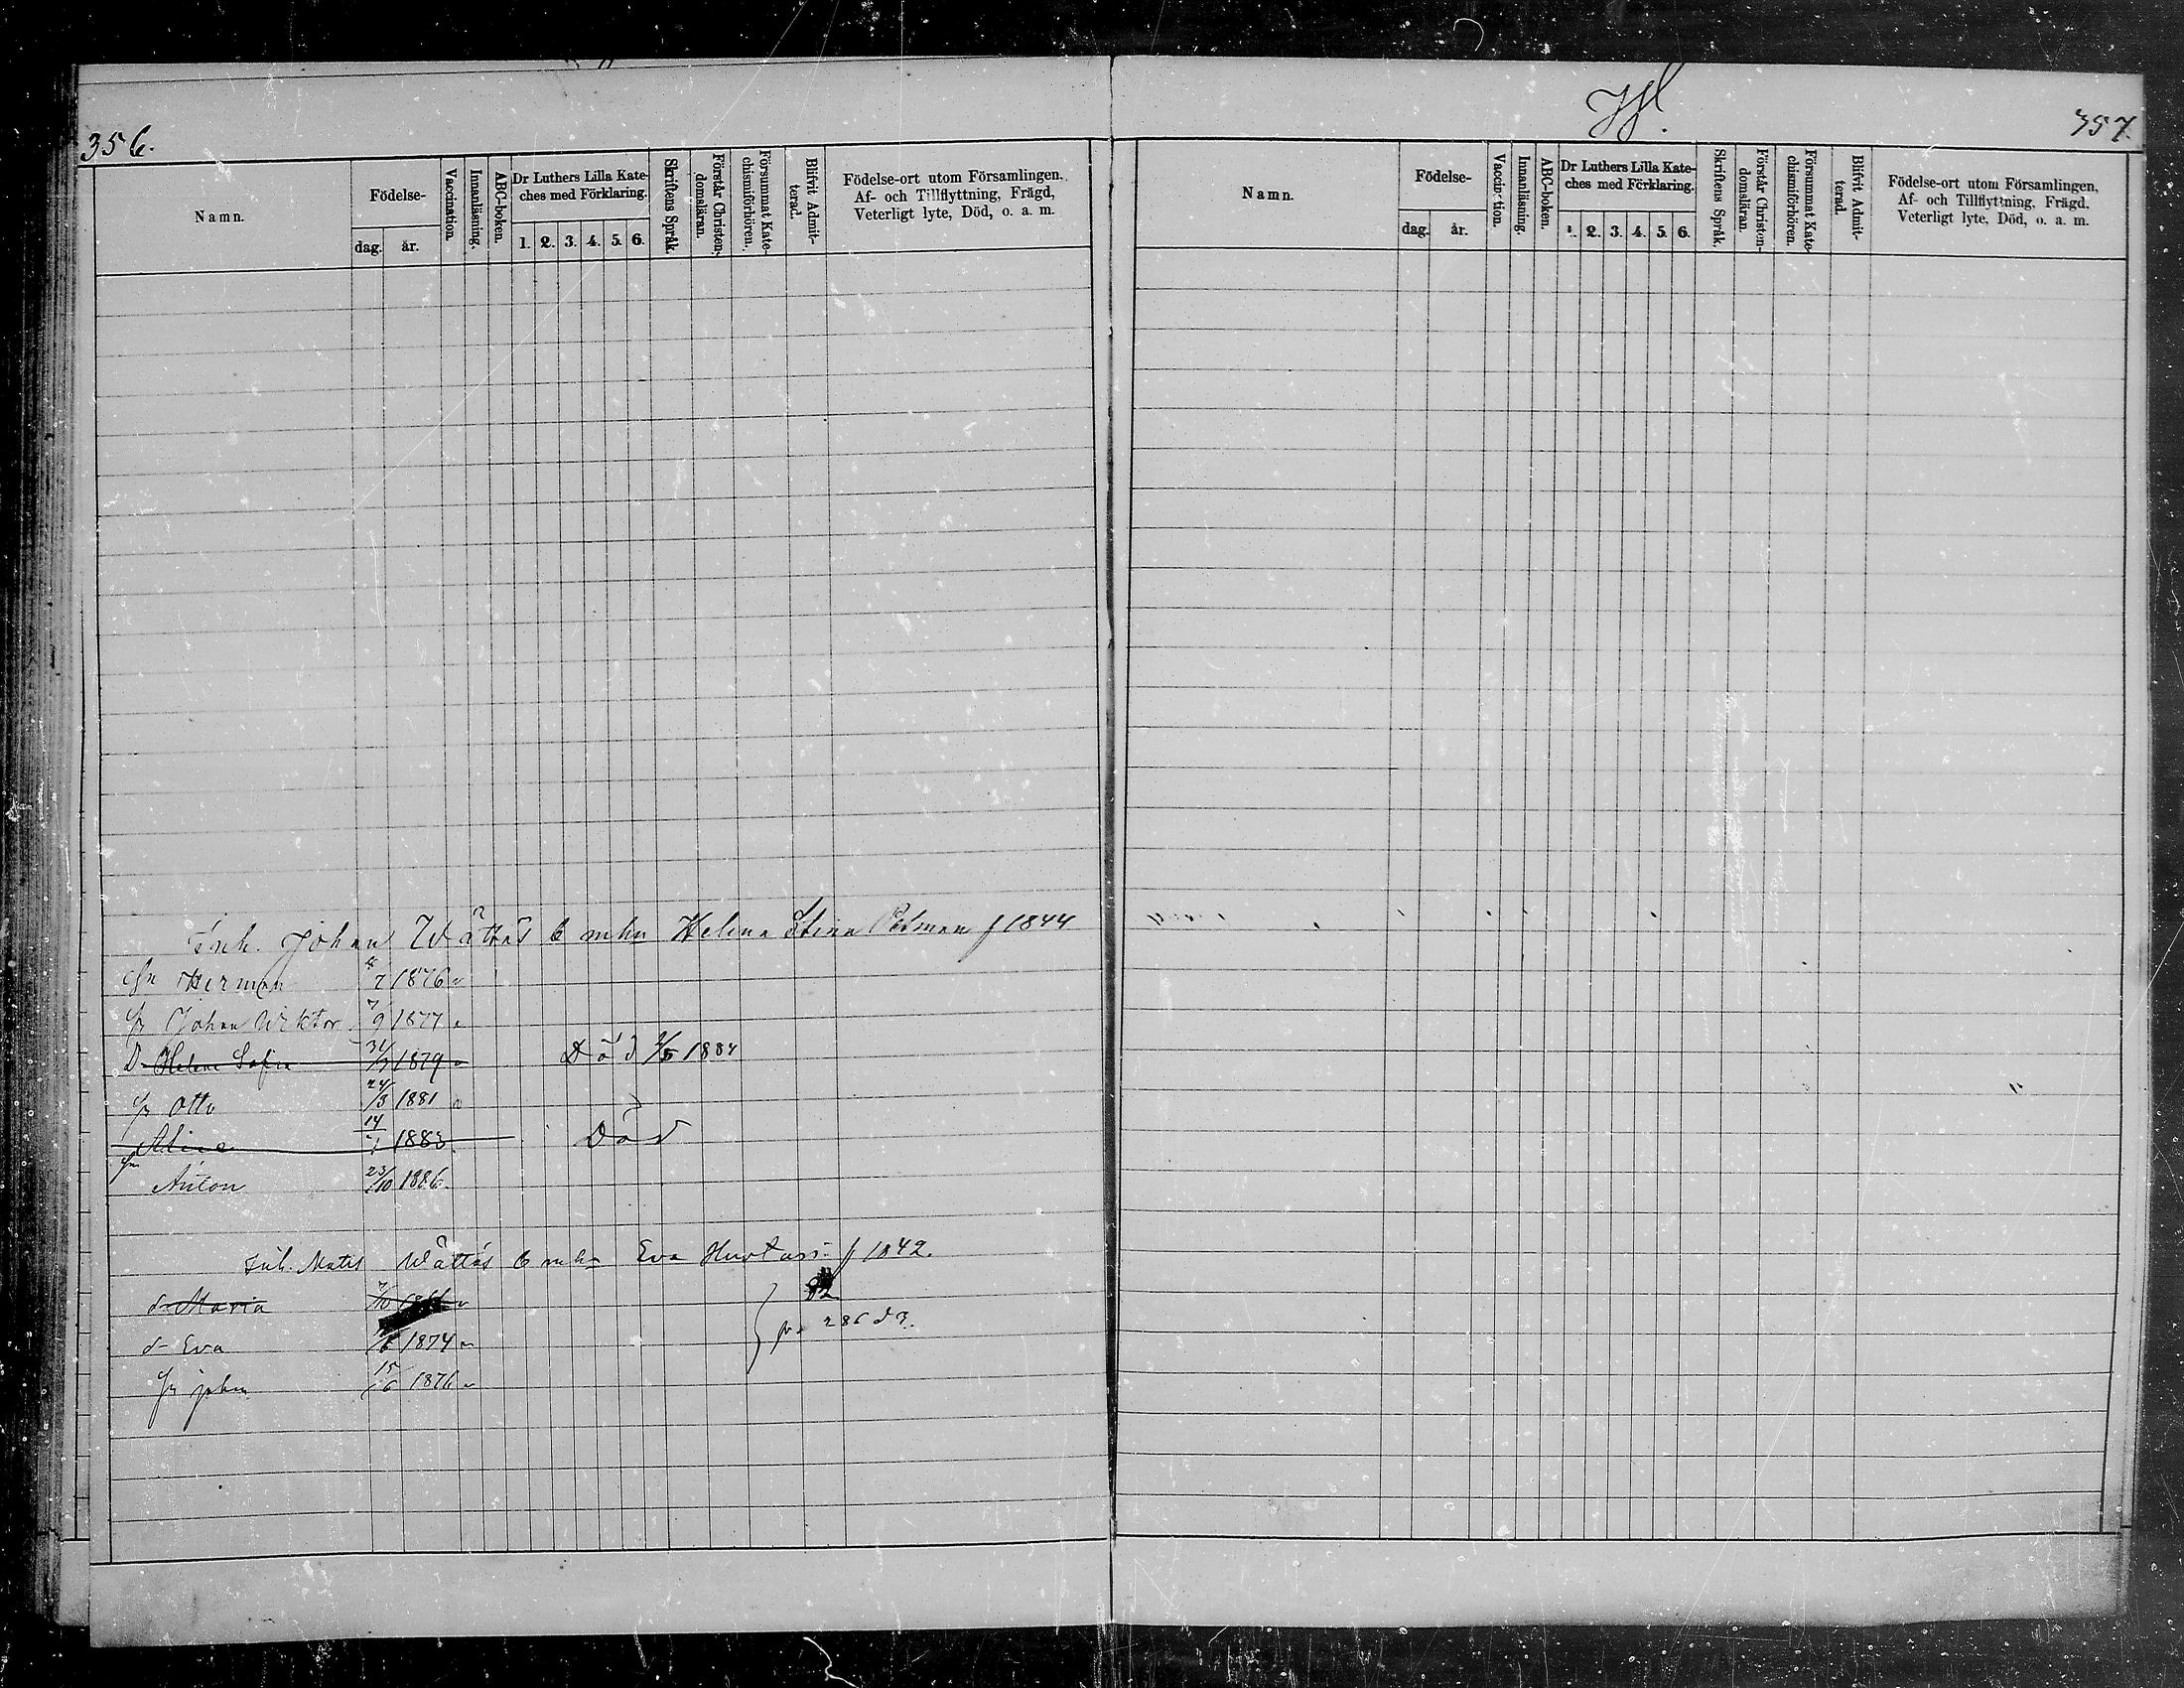 356.
Namn.
Födelse-
dag.
år.
Vaccination.
Innanläsning.
ABC-boken.
Dr Luthers Lilla Kate-
ches med Förklaring.
1. 2. 3. 4. 5. 6.
Skriftens Språk.
Förstår Christen-
domsläran.
Försummat Kate-
chismiförhören.
Blifvit Admit-
terad.
Födelse-ort utom Församlingen.
Af- och Tillflyttning, Frägd,
Veterligt lyte, Död, o. a. m.
Inh. Johan Wåttås Helena Stina f 1844
Herman 7 1876
Johan Wiktor 7/9 1877
D Helena Sofia 31 1879 Död 1884
Otto 24/3 1881
Alina 14 1883 Död
Anton 23/10 1886
Inh. Mats Wåttås Eva f 1842.
d Maria 82
d Eva 1874 286 d 3.
John 15/6 1876
357
Namn.
Födelse-
dag.
år.
Vaccination.
Innanläsning.
ABC-boken.
Dr Luthers Lilla Kate-
ches med Förklaring.
1. 2. 3. 4. 5. 6.
Skriftens Språk.
Förstår Christen-
domsläran.
Försummat Kate-
chismiförhören.
Blifvit Admit-
terad.
Födelse-ort utom Församlingen,
Af- och Tillflyttning, Frägd.
Veterligt lyte, Död, o. a. m.